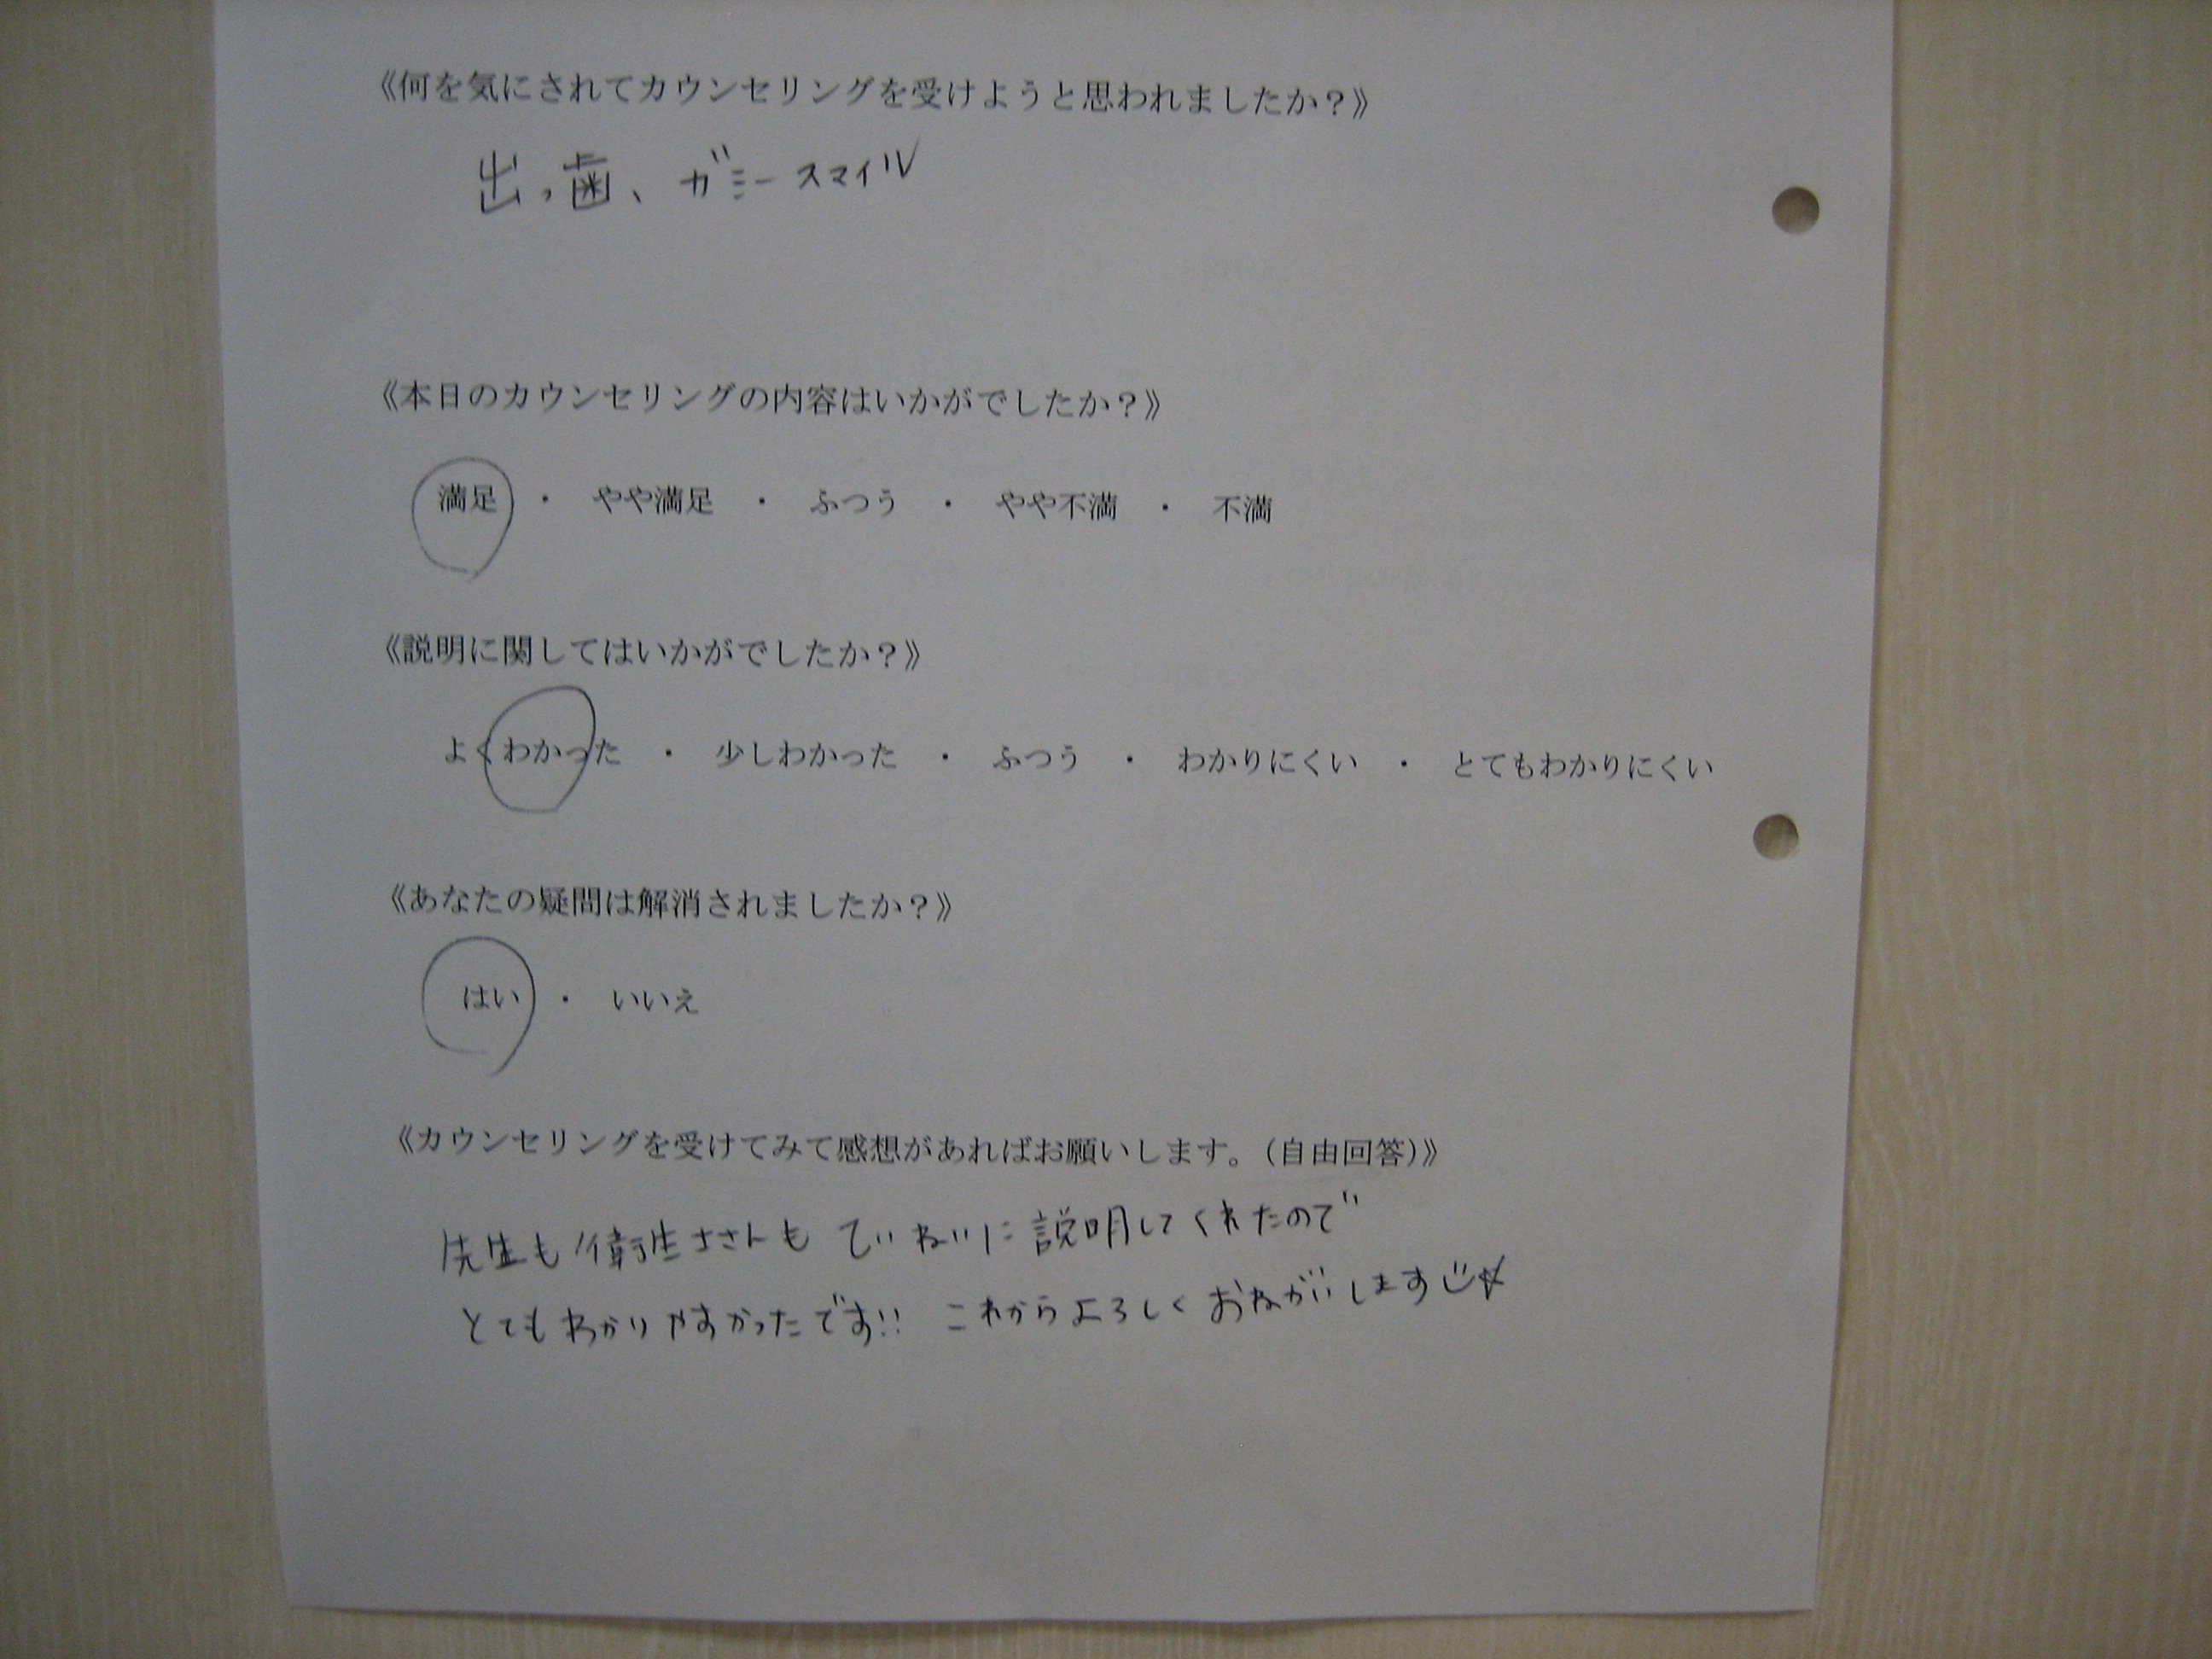 《何を気にされてカウンセリングを受けようと思われましたか？》
出っ歯、ガミースマイル
《本日のカウンセリングの内容はいかがでしたか？》
満足 ・ やや満足 ・ ふつう ・ やや不満 ・ 不満
《説明に関してはいかがでしたか？》
よくわかった ・ 少しわかった ・ ふつう ・ わかりにくい ・ とてもわかりにくい
《あなたの疑問は解消されましたか？》
はい ・ いいえ
《カウンセリングを受けてみて感想があればお願いします。（自由回答）》
先生も衛生士さんも ていねいに説明してくれたので
とてもわかりやすかったです!! これからよろしくおねがいします☆